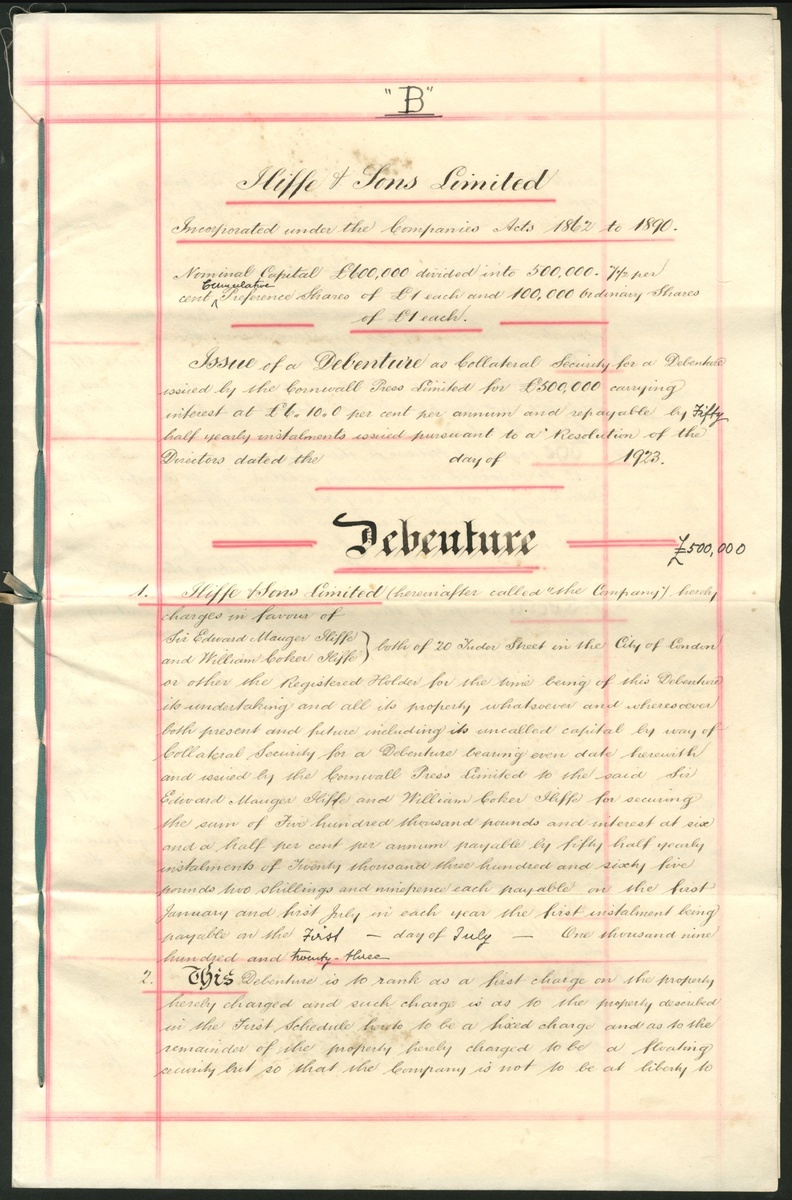 "B"
Iliffe & Sons Limited
Incorporated under the Companies Acts 1862 to 1890.
Nominal Capital £600,000 divided into 500,000. 7½ per
Cumulative
cent Preference Shares of £1 each and 100,000 Ordinary Shares
of £1 each.
Issue of a Debenture as Collateral Security for a Debenture
issued by the Cornwall Press Limited for £500,000 carrying
interest at £6.10.0 per cent per annum and repayable by Fifty
half yearly instalments issued pursuant to a Resolution of the
Directors dated the day of 1923.
Debenture
£500,000
1. Iliffe & Sons Limited (hereinafter called "the Company") hereby
charges in favour of
Sir Edward Mauger Iliffe
and William Coker Iliffe } both of 20 Tudor Street in the City of London
or other the Registered Holder for the time being of this Debenture
its undertaking and all its property whatsoever and wheresoever
both present and future including its uncalled capital by way of
Collateral Security for a Debenture bearing even date herewith
and issued by the Cornwall Press Limited to the said Sir
Edward Mauger Iliffe and William Coker Iliffe for securing
the sum of Five hundred thousand pounds and interest at six
and a half per cent per annum payable by fifty half yearly
instalments of Twenty thousand three hundred and sixty five
pounds two shillings and ninepence each payable on the first
January and first July in each year the first instalment being
payable on the First — day of July — One thousand nine
hundred and twenty-three
2. This Debenture is to rank as a first charge on the property
hereby charged and such charge is as to the property described
in the First Schedule hereto to be a fixed charge and as to the
remainder of the property hereby charged to be a floating
security but so that the Company is not to be at liberty to